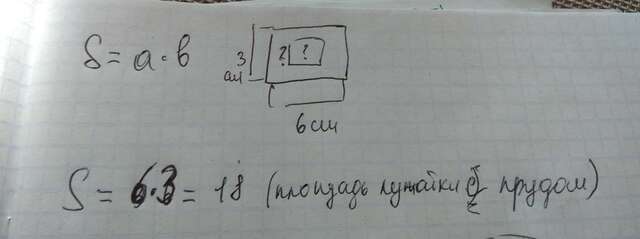 S = а · в
3 см
? ?
6 см
S = 6·3 = 18 (площадь лужайки с прудом)